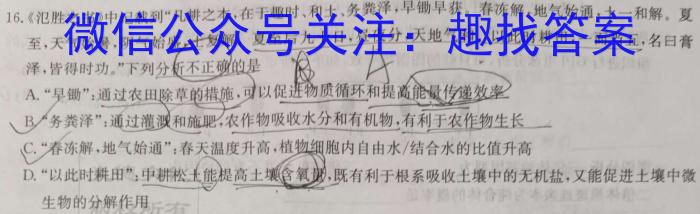 16.《氾胜之书》中记载到“凡耕之本,在于趣时、和土、务粪泽,早锄早获。春冻解,地气始通,土一和解。夏
至,天气
微信公众号关注：趣找答案
名曰膏
泽,皆得时功。”下列分析不正确的是
A.“早锄”:通过农田除草的措施,可以促进物质循环和提高能量传递效率
B.“务粪泽”:通过灌溉和施肥,农作物吸收水分和有机物,有利于农作物生长
C.“春冻解,地气始通”:春天温度升高,植物细胞内自由水/结合水的比值升高
D.“以此时耕田”:中耕松土能提高土壤含氧量,既有利于根系吸收土壤中的无机盐,又能促进土壤中微
生物的分解作用